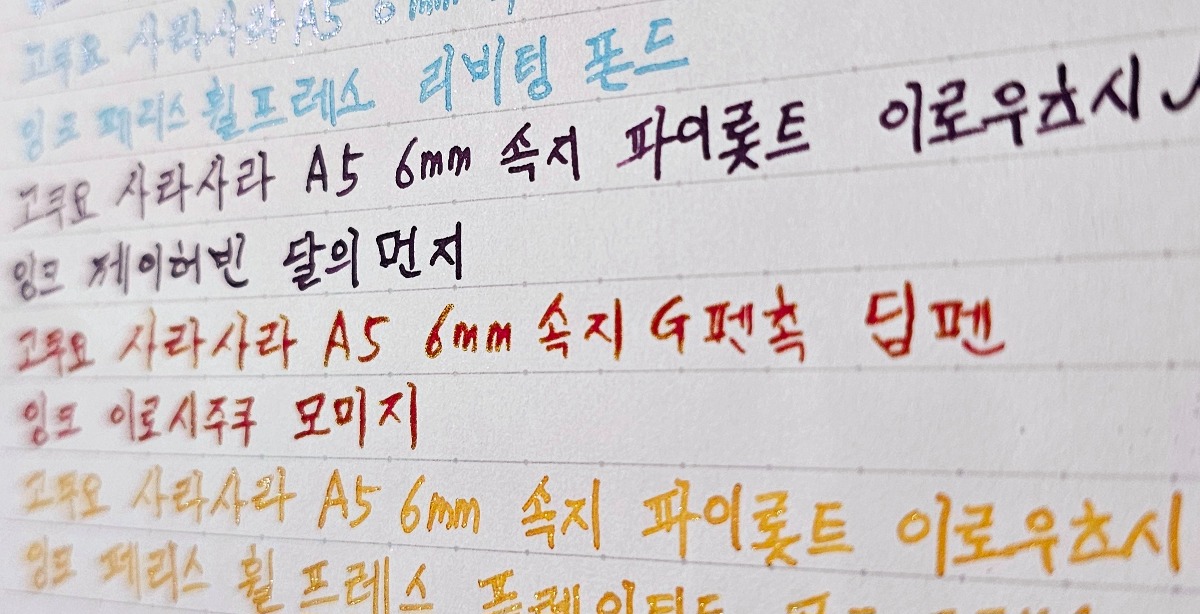 고쿠요 사라사라 A5 6mm
잉크 페리스 휠 프레스 리비팅 폰드
고쿠요 사라사라 A5 6mm 속지 파이롯트 이로우츠시
잉크 제이허빈 달의 먼지
고쿠요 사라사라 A5 6mm 속지 G펜촉 딥펜
잉크 이로시주쿠 모미지
고쿠요 사라사라 A5 6mm 속지 파이롯트 이로우츠시
잉크 페리스 휠 프레스